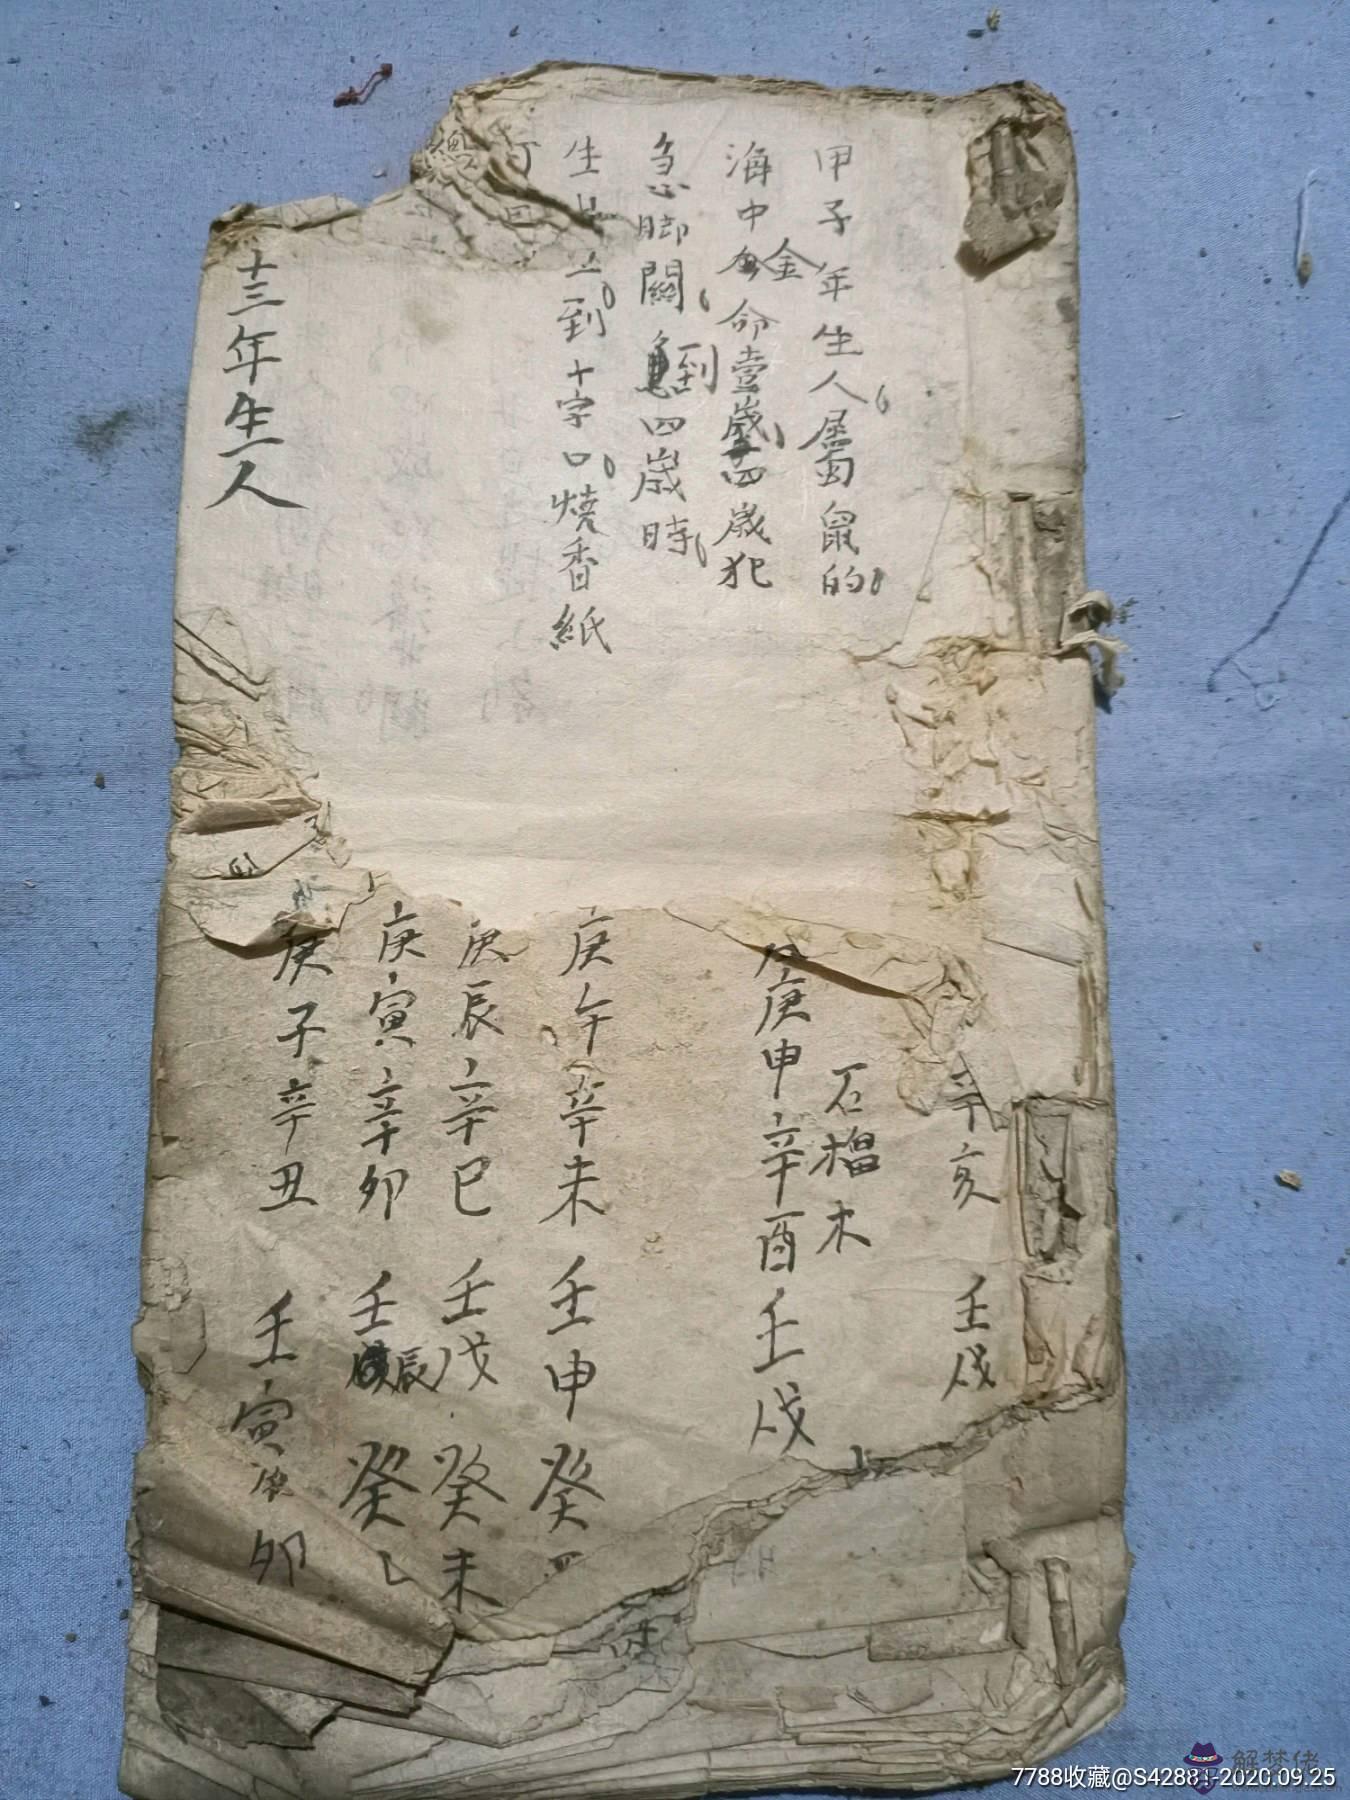 甲子年生人屬鼠的
海中金命壹歲四歲犯
急脚關到四歲時
生
到十字口燒香紙
十三年生人
辛亥 壬戌
石榴木
庚申辛酉壬戌
庚午辛未壬申癸
庚辰辛巳壬戌癸未
庚寅辛卯壬辰癸
庚子辛丑壬寅卯
7788收藏@S42881-2020.09.25
解梦佬